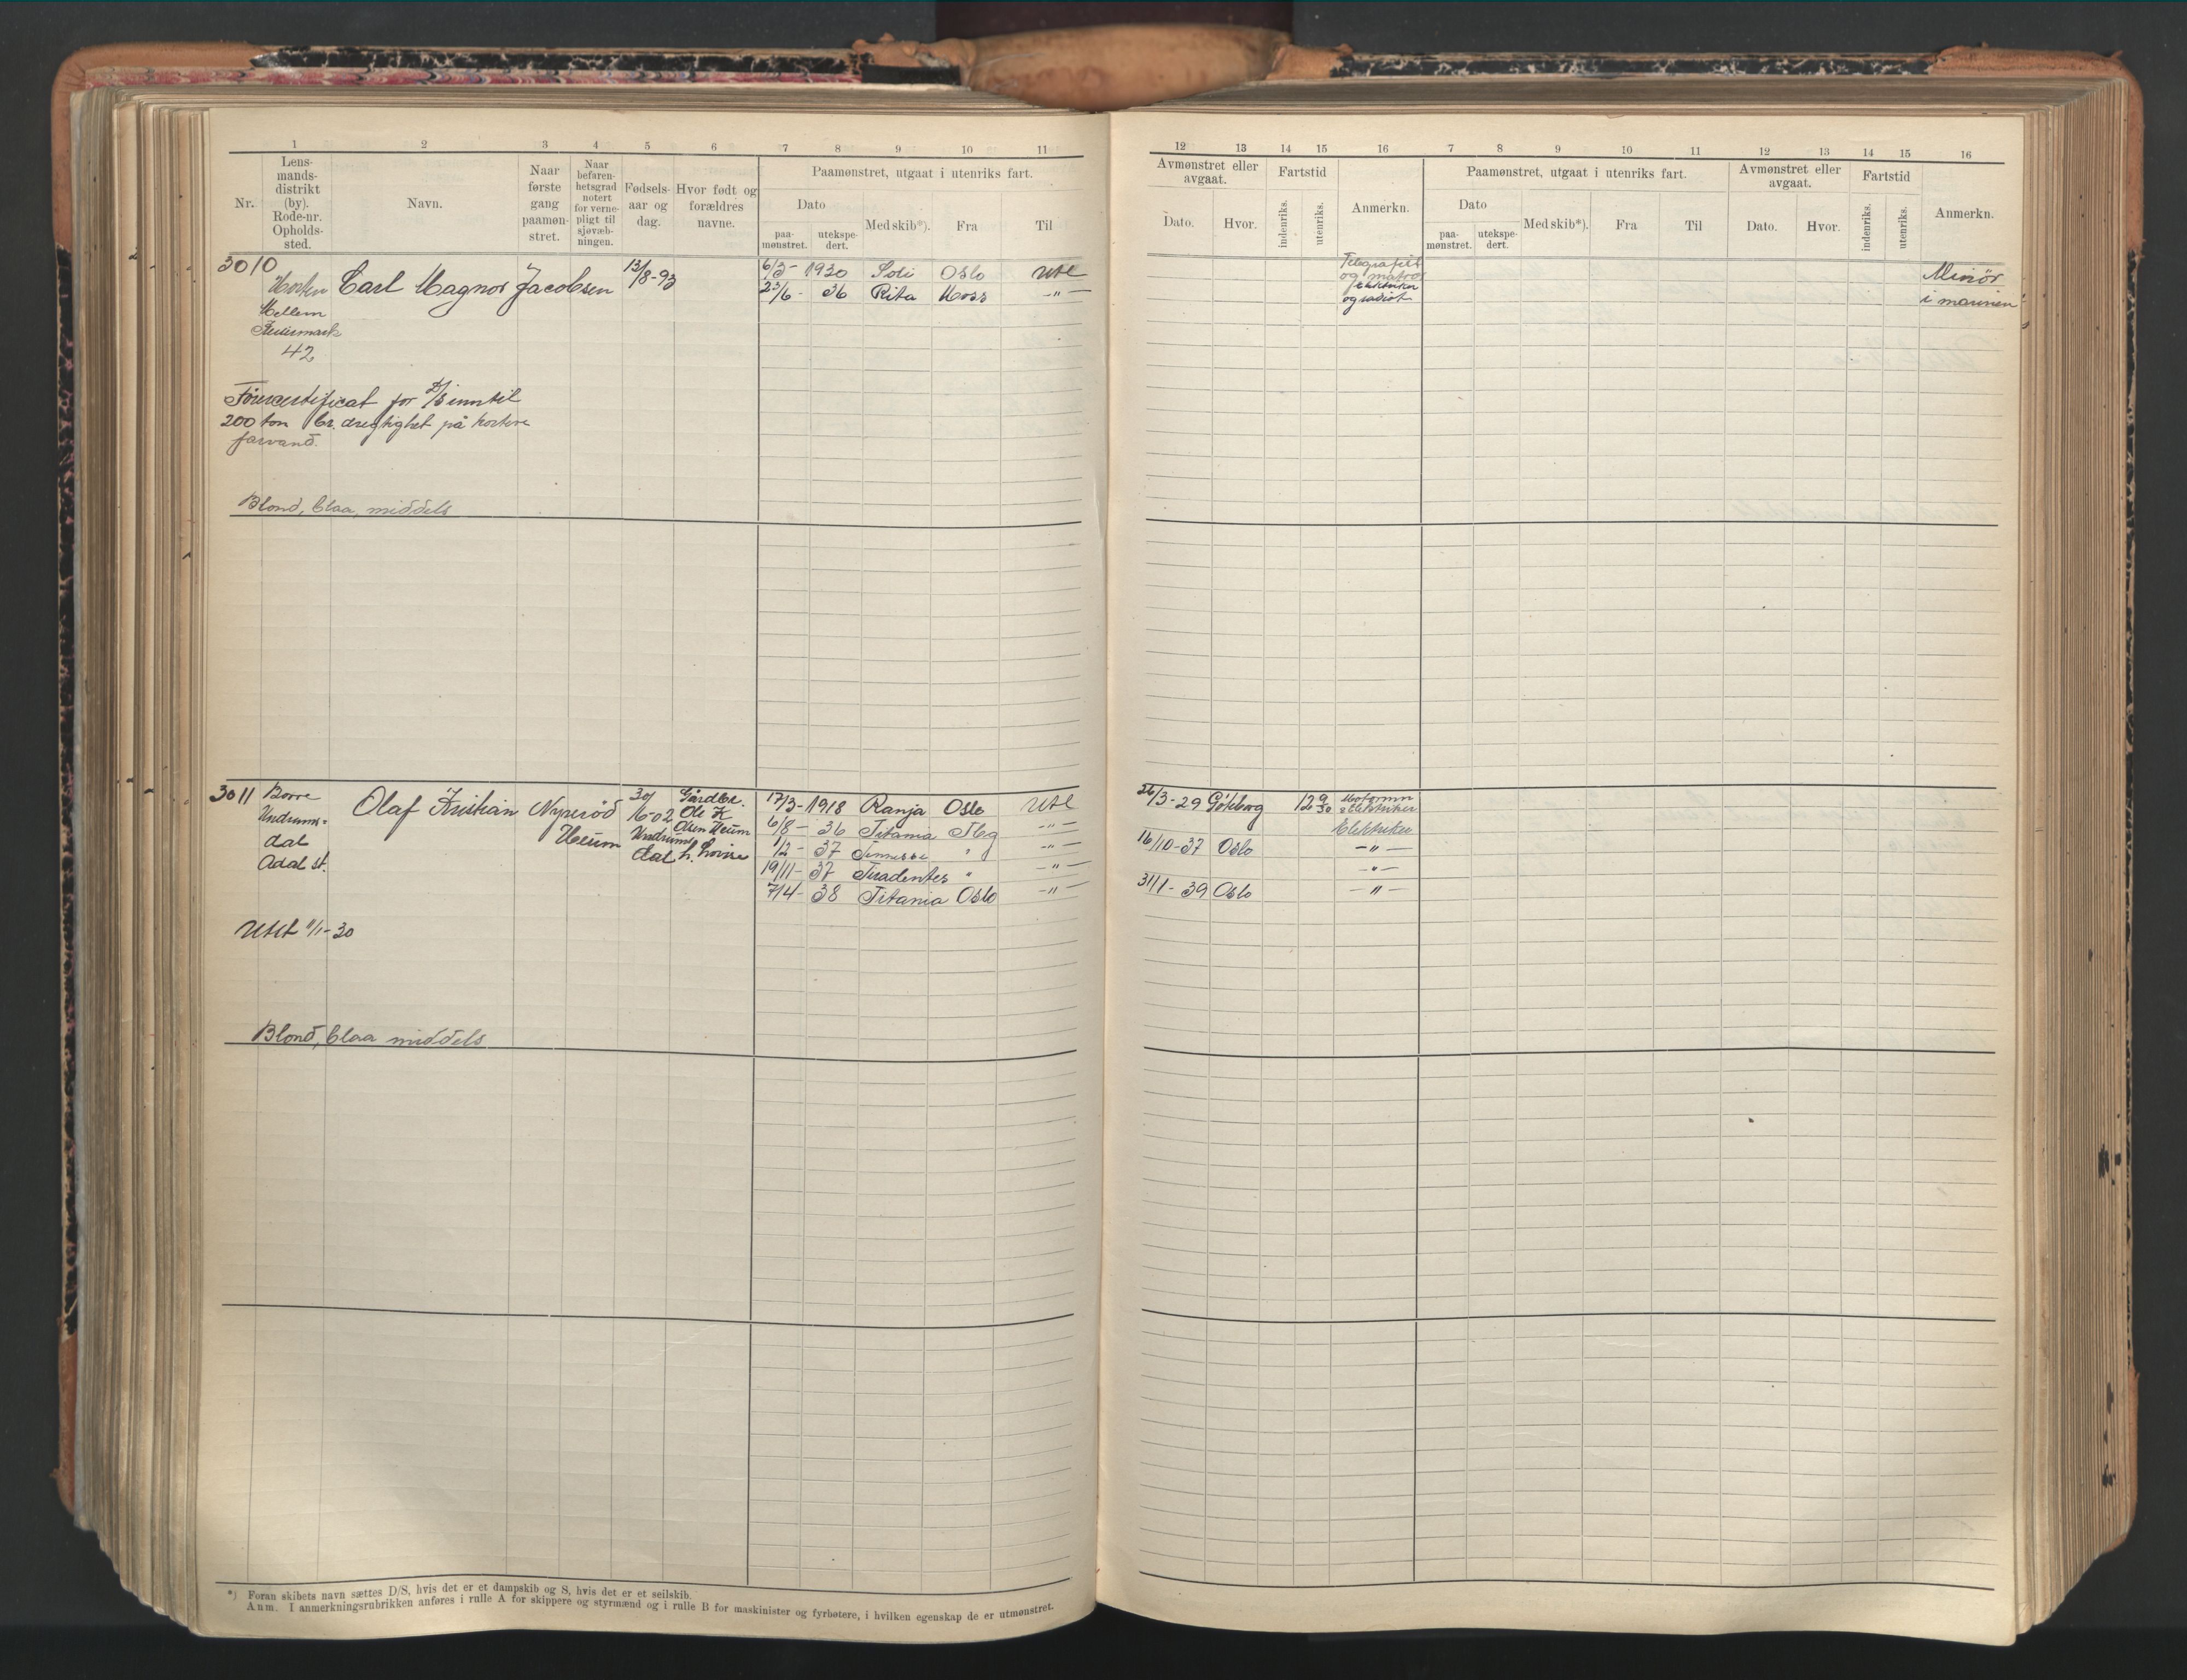 1 2 3 4 5 6 7 8 9 10 11
Nr.
Lens-
mands-
distrikt
(by).
Rode-nr.
Opholds-
sted.
Navn.
Naar
første
gang
paamøn-
stret.
Naar
befaren-
hetsgrad
notert
for verne-
pligt til
sjøvæb-
ningen.
Fødsels-
aar og
dag.
Hvor født og
forældres
navne.
Paamønstret, utgaat i utenriks fart.
Dato
paa-
mønstret.
utekspe-
dert.
Med skib*).
Fra
Til
3010
Horten
Carl Magnor Jacobsen
13/8-93
6/3- 1920 Soli Oslo Utl
23/6- 36 Rita Moss -"-
Mellem
42
Førercertificat for D/S inntil
200 ton br. drægtighet på kortere
farvand.
Blond, blaa, middels
3011
Borre
Undrums-
dal
Adal st.
Olaf Kristian Nyperød
Heum
30/
6-02
Gårdbr.
Ole K
Olsen Heum
Undrums
dal h. Lovise
17/3- 1918 Ranja Oslo Utl
6/8- 36 Titania Tbg -"-
1/2- 37 Tennessee " -"-
19/11- 37 Tiradentes " -"-
7/4- 38 Titania Oslo -"-
Utst 11/1-30
Blond, blaa middels
*) Foran skibets navn sættes D/S, hvis det er et dampskib og S, hvis det er et seilskib.
Anm. I anmerkningsrubrikken anføres i rulle A for skippere og styrmænd og i rulle B for maskinister og fyrbøtere, i hvilken egenskap de er utmønstret.
12 13 14 15 16 7 8 9 10 11 12 13 14 15 16
Avmønstret eller
avgaat.
Dato.
Hvor.
Fartstid
indenriks.
utenriks.
Anmerkn.
Paamønstret, utgaat i utenriks fart.
Dato
paa-
mønstret.
utekspe-
dert.
Med skib*).
Fra
Til
Avmønstret eller
avgaat.
Dato.
Hvor.
Fartstid
indenriks.
utenriks.
Anmerkn.
Telegrafist
og matros
elektriker
og radiot
Minör
i marinen
26/3-29 Gøteborg 12 9/30 Motormn
elektriker
Elektriker
16/10-37 Oslo -"-
-"-
31/1-39 Oslo -"-